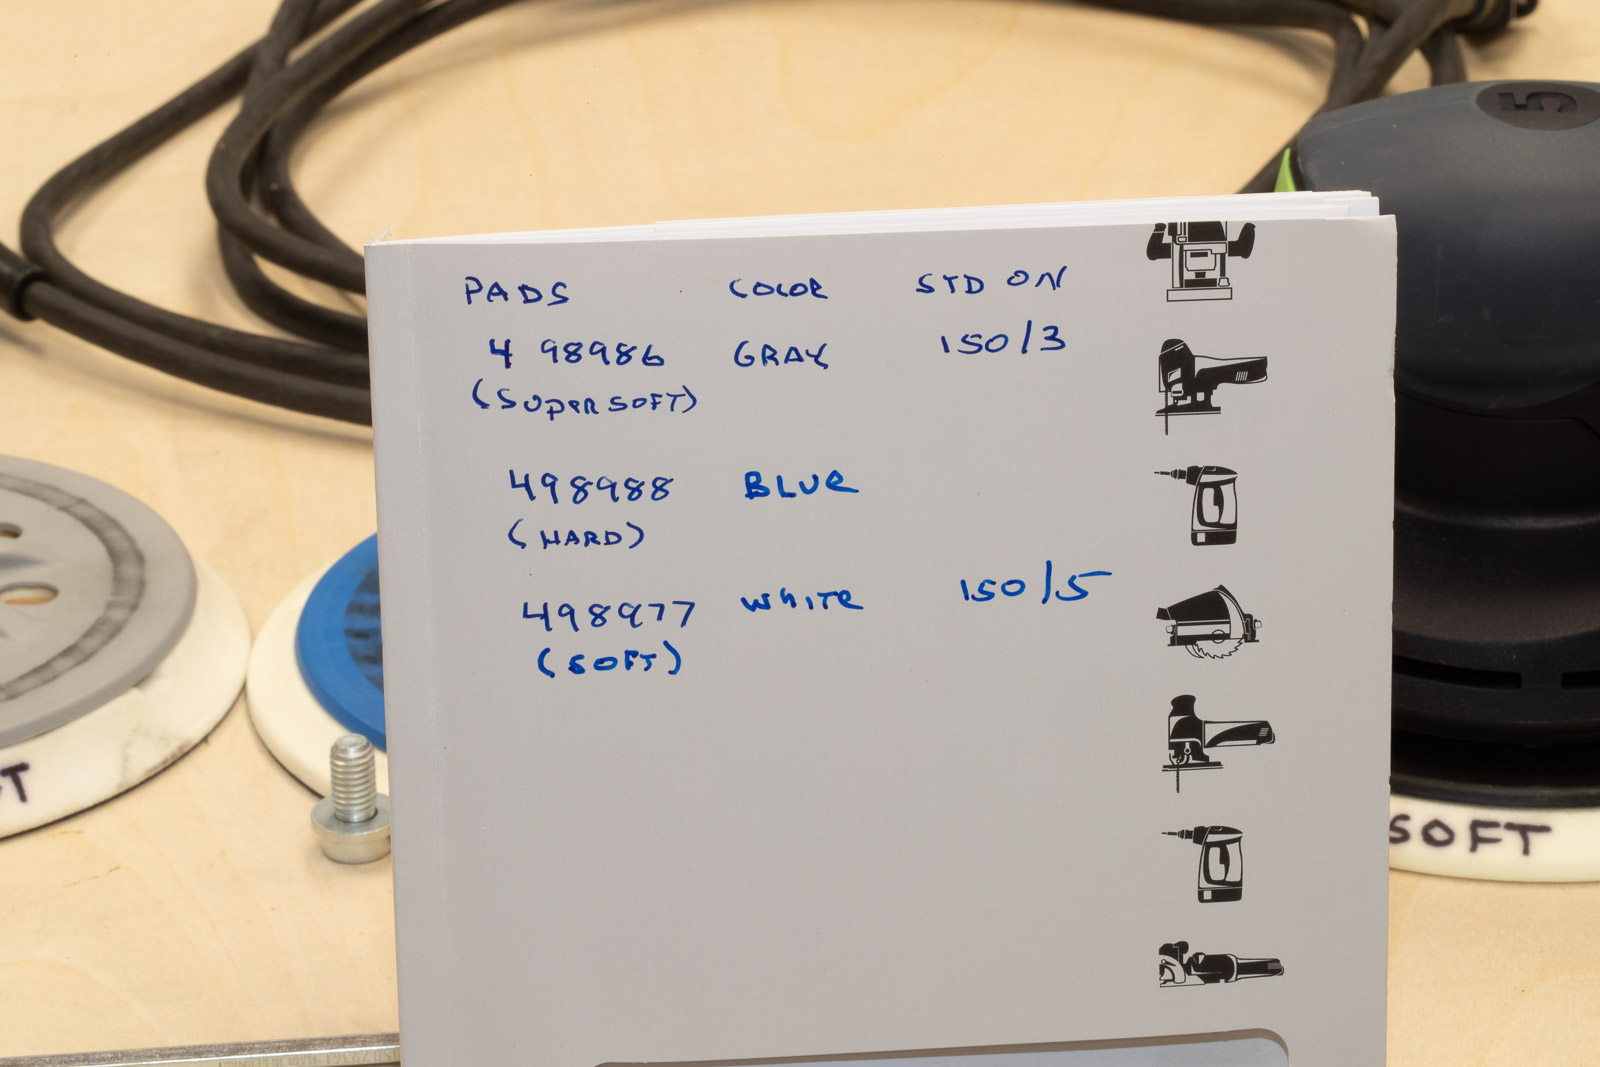 5
PADS COLOR STD ON
498986 GRAY 150/3
(SUPERSOFT)
498988 BLUE
(HARD)
498977 WHITE 150/5
(SOFT)
SOFT